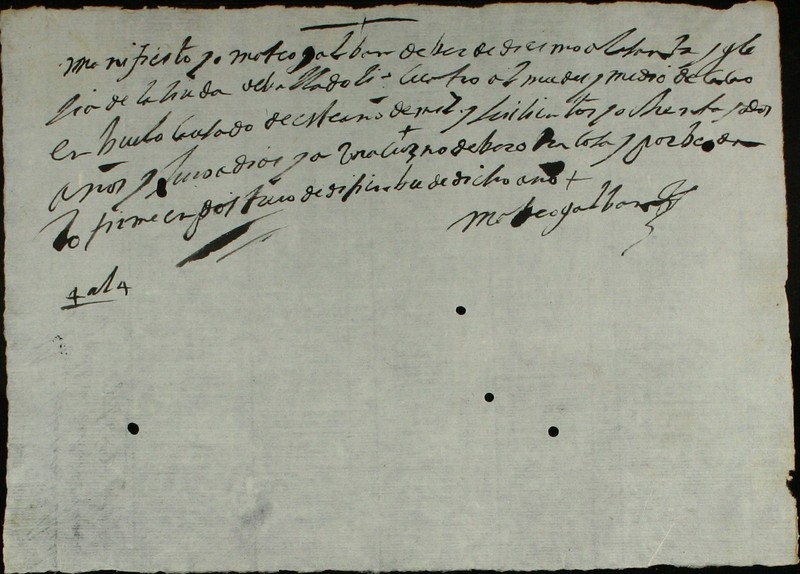 manifiesto yo mateo galban deber de diesmo a la santa ygle
sia de la siuda de balladoli cuatro almudes y medio de
en buelo causado de este año de mil y seisientos y ochenta y dos
años y Juro a dios y a Una cruz no debo otra cosa y por berda
lo firme en dos de disiembre de dicho año
mateo galban
4 al 4